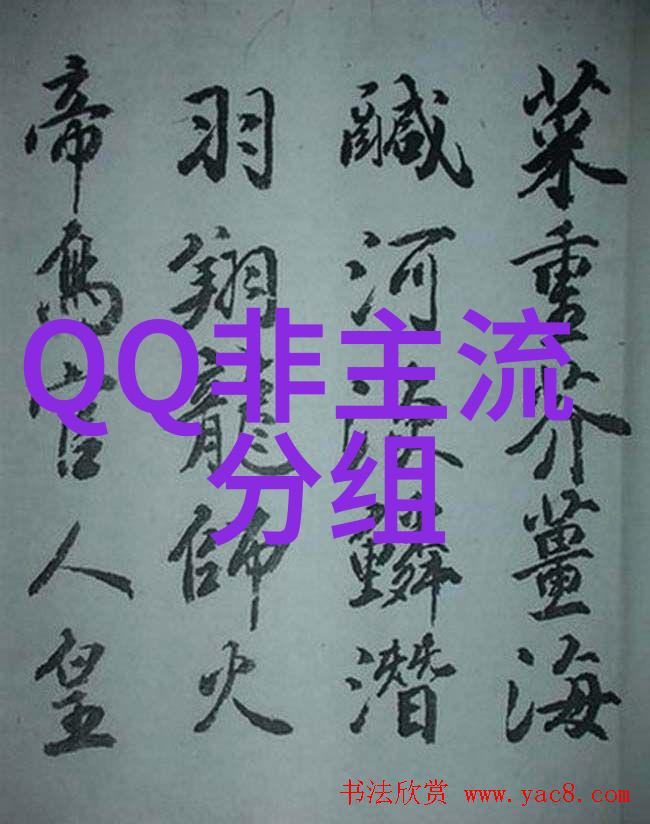 菜重芥薑海
鹹河淡鱗潛
羽翔龍師火
帝鳥官人皇
QQ非主流
分组
书法欣赏 www.yac8.com